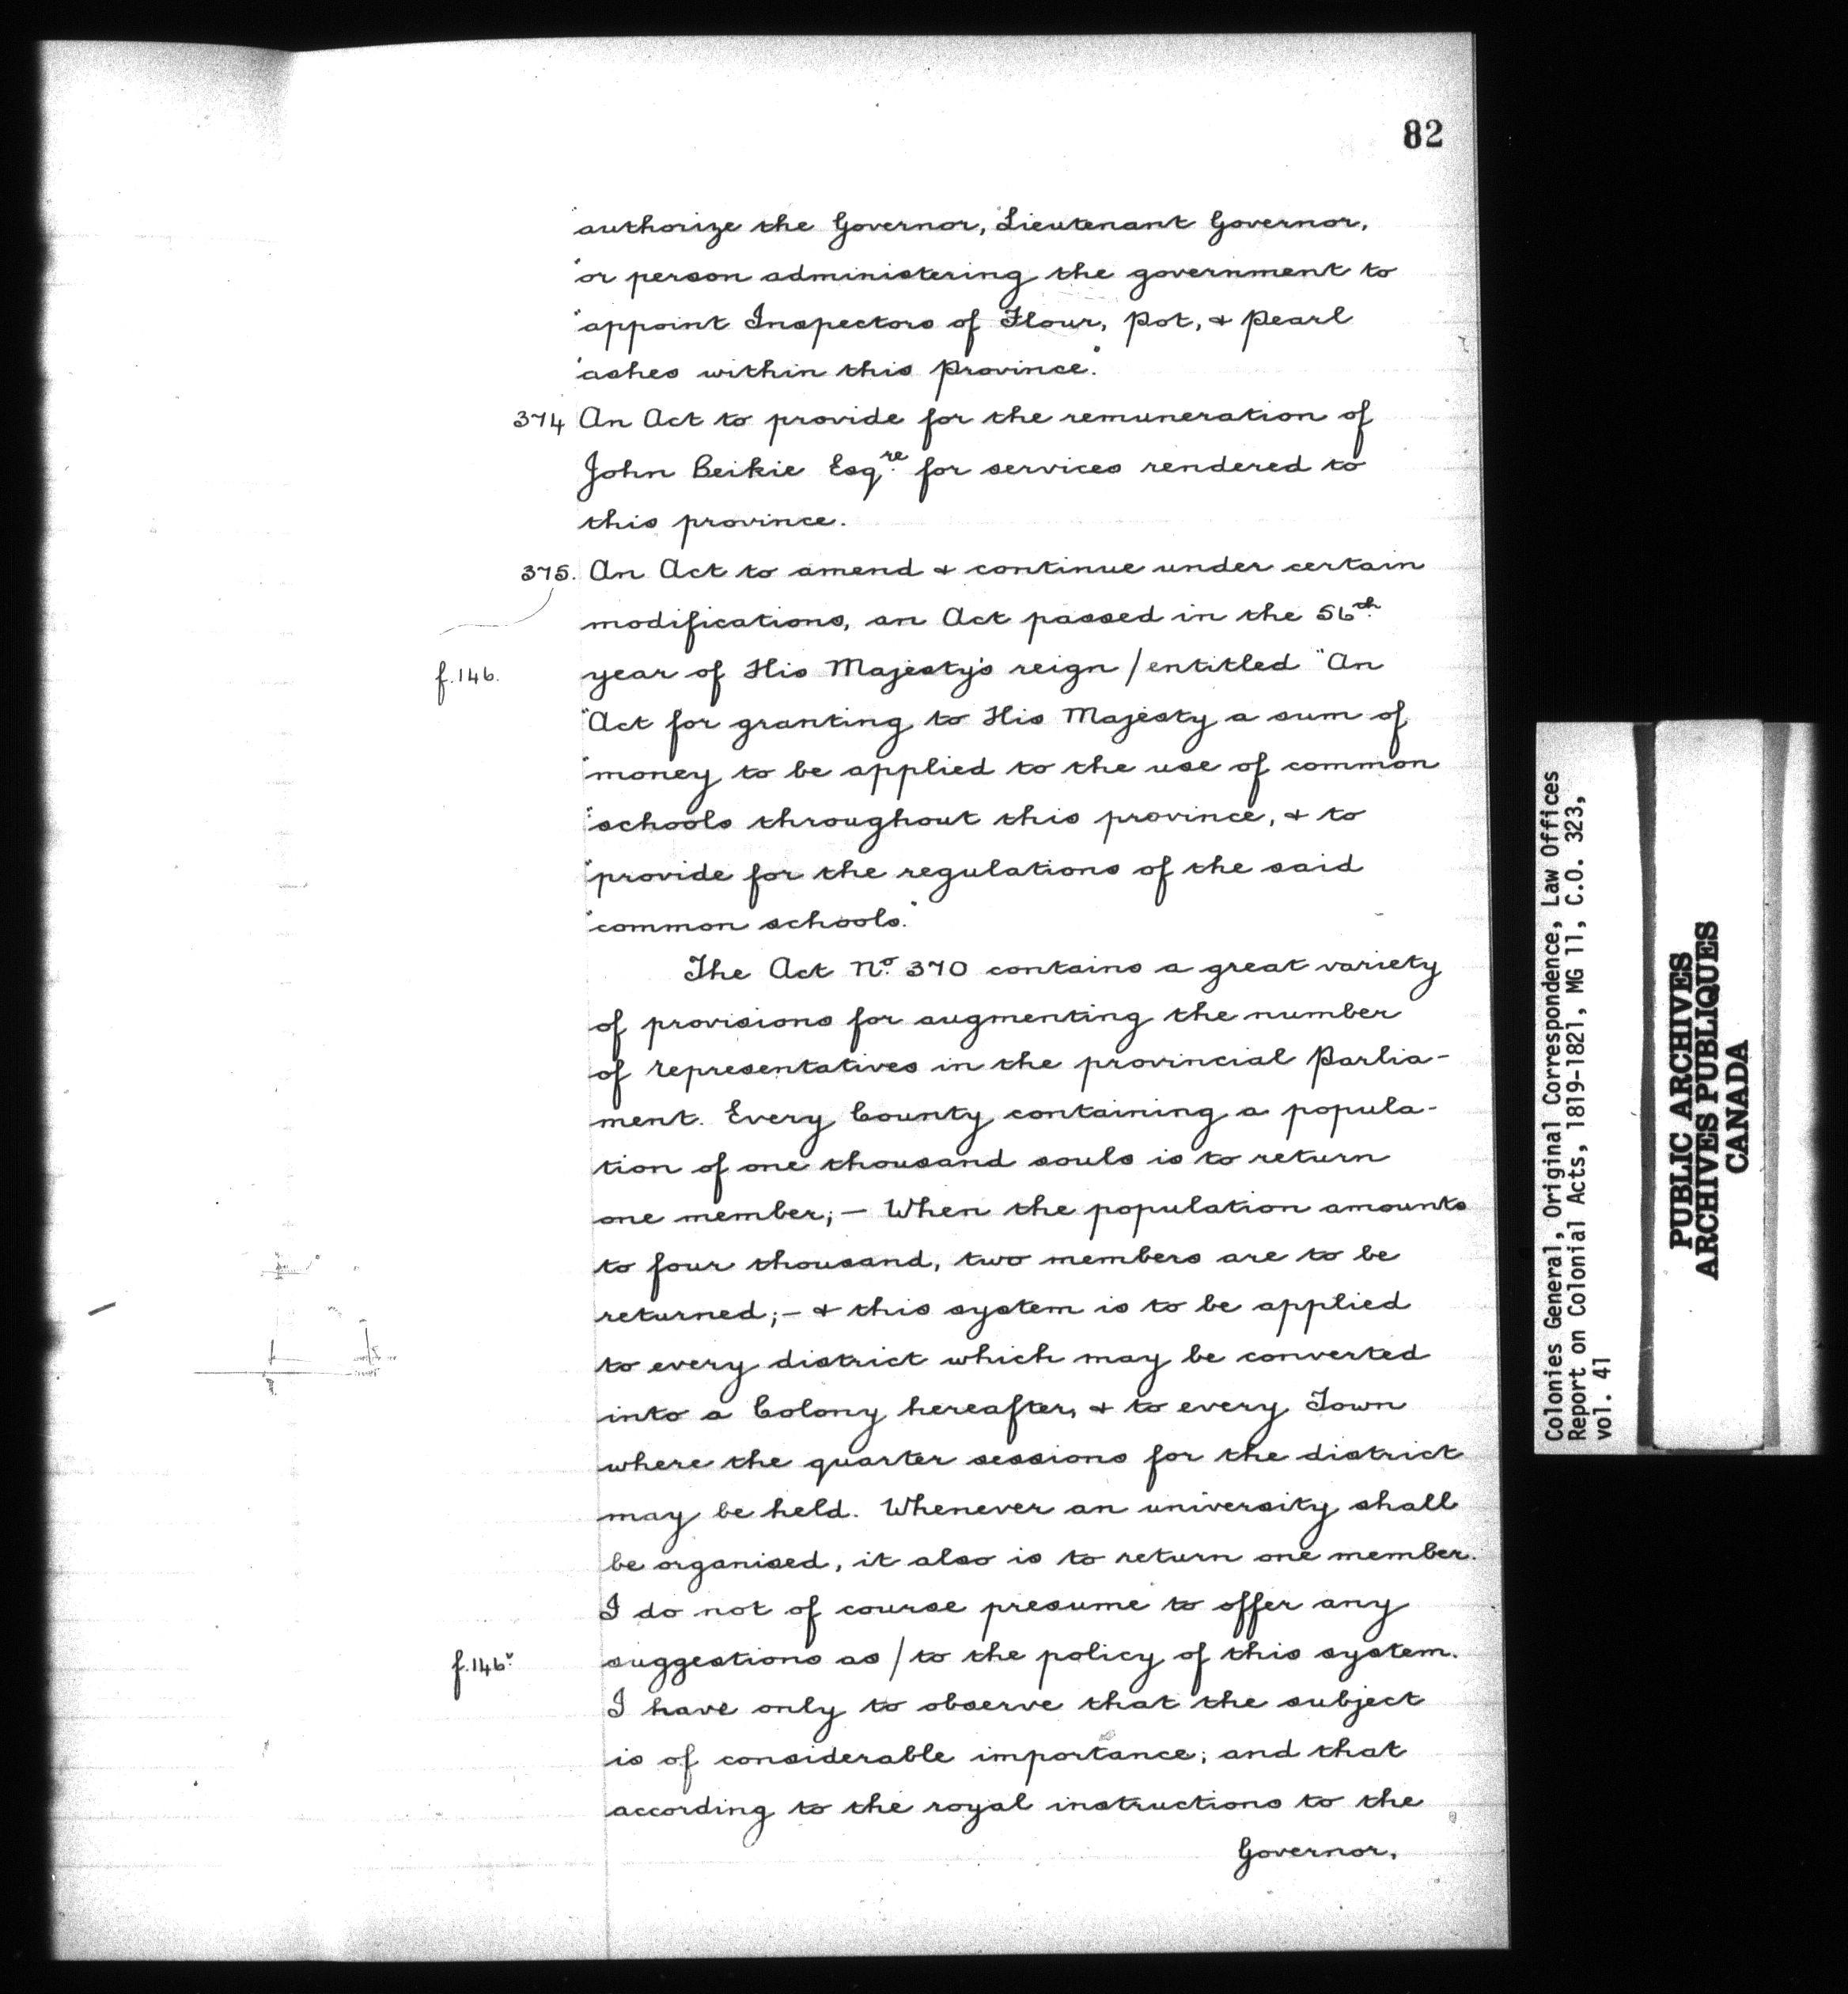 82
"authorize the Governor, Lieutenant Governor,
"or person administering the government to
"appoint Inspectors of Flour, Pot, & Pearl
"ashes within this Province."
374 An Act to provide for the remuneration of
John Beikie Esqre. for services rendered to
this province.
375. An Act to amend & continue under certain
modifications, an Act passed in the 56th
f.146. year of His Majesty's reign / entitled "An
"Act for granting to His Majesty a sum of
"money to be applied to the use of common
"schools throughout this province, & to
"provide for the regulations of the said
"common schools."
The Act No. 370 contains a great variety
of provisions for augmenting the number
of representatives in the provincial Parlia-
ment. Every County containing a popula-
tion of one thousand souls is to return
one member; — When the population amounts
to four thousand, two members are to be
returned; — & this system is to be applied
to every district which may be converted
into a Colony hereafter, & to every Town
where the quarter sessions for the district
may be held. Whenever an university shall
be organised, it also is to return one member.
I do not of course presume to offer any
f.146v. suggestions as / to the policy of this system.
I have only to observe that the subject
is of considerable importance; and that
according to the royal instructions to the
Governor,
Colonies General, Original Correspondence, Law Offices
Report on Colonial Acts, 1819-1821, MG 11, C.O. 323,
vol. 41
PUBLIC ARCHIVES
ARCHIVES PUBLIQUES
CANADA